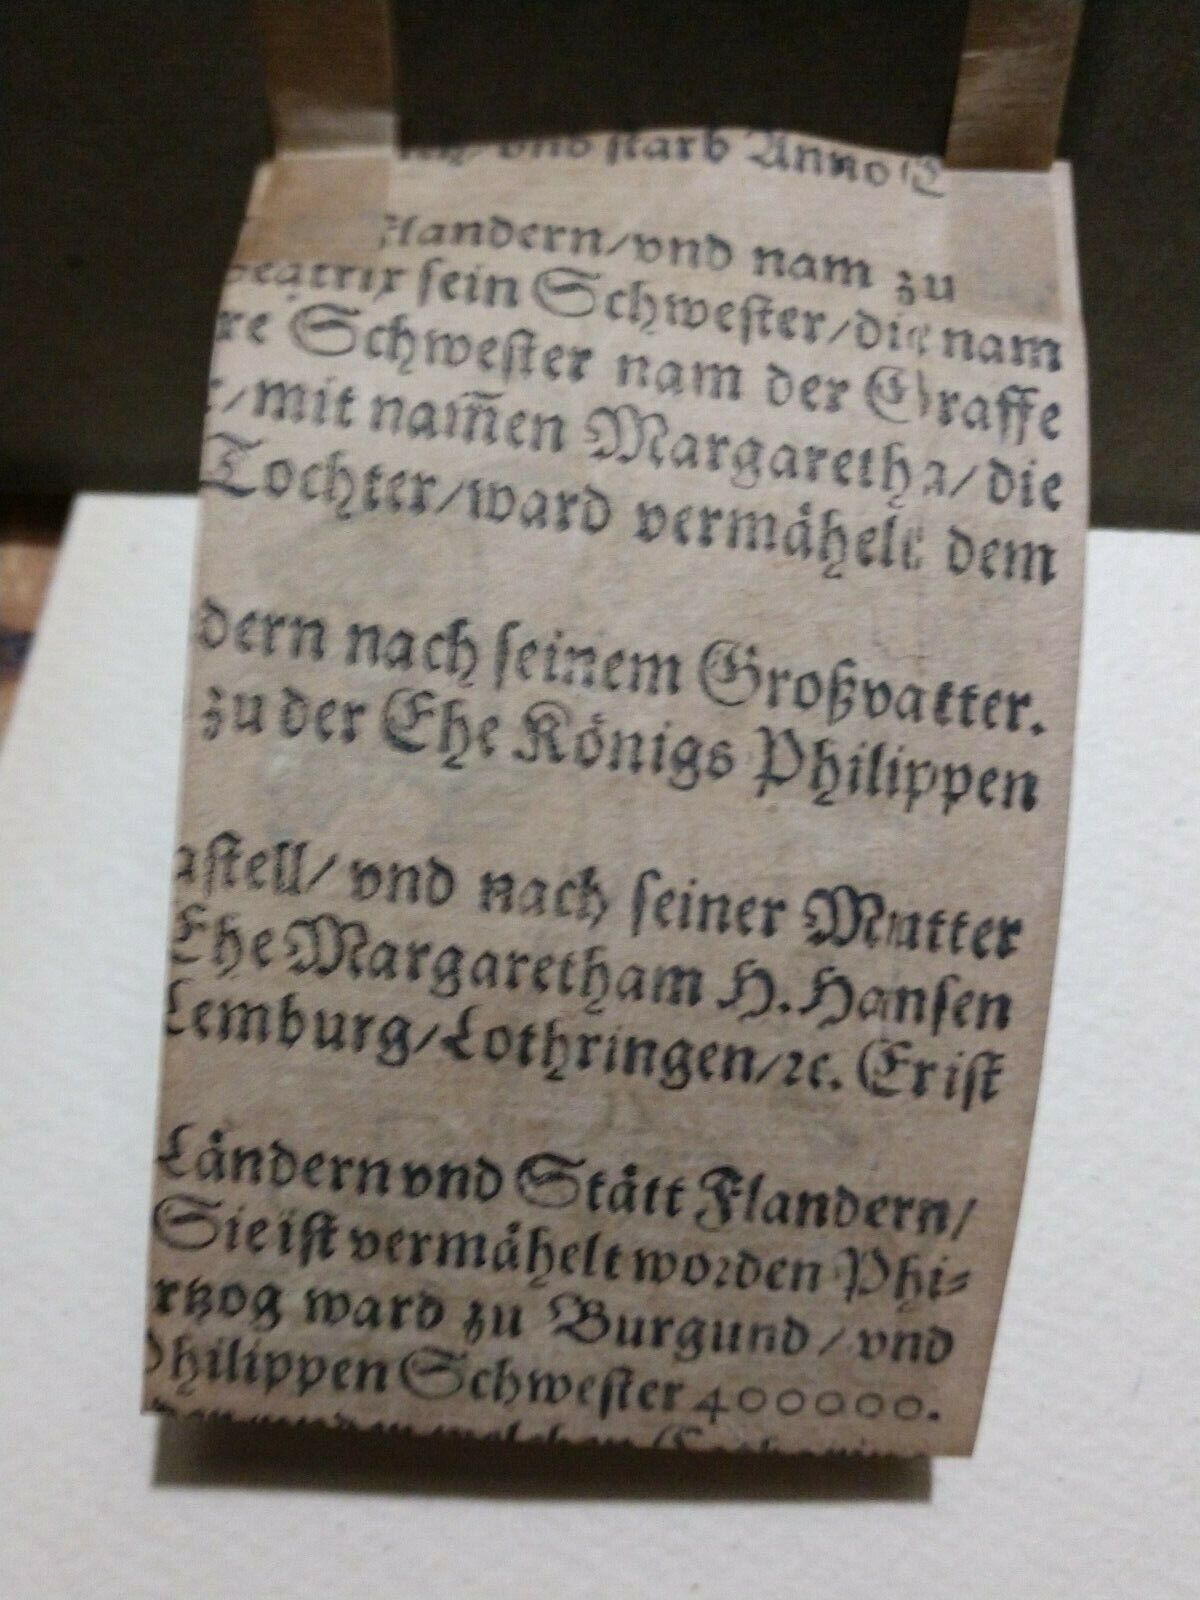 vnd starb Anno
Flandern/vnd nam zu
Beatrix sein Schwester/die nam
re Schwester nam der Graffe
/mit nam̃en Margaretha/die
Tochter/ward vermåhelt dem
dern nach seinem Großvatter.
zu der Ehe Kônigs Philippen
astell/ vnd nach seiner Mutter
Ehe Margaretham H. Hansen
Lemburg/Lothringen/ꝛc. Er ist
Låndern vnd Stått Flandern/
Sie ist vermåhelt worden Phi-
rtzog ward zu Burgund/vnd
Philippen Schwester 400000.